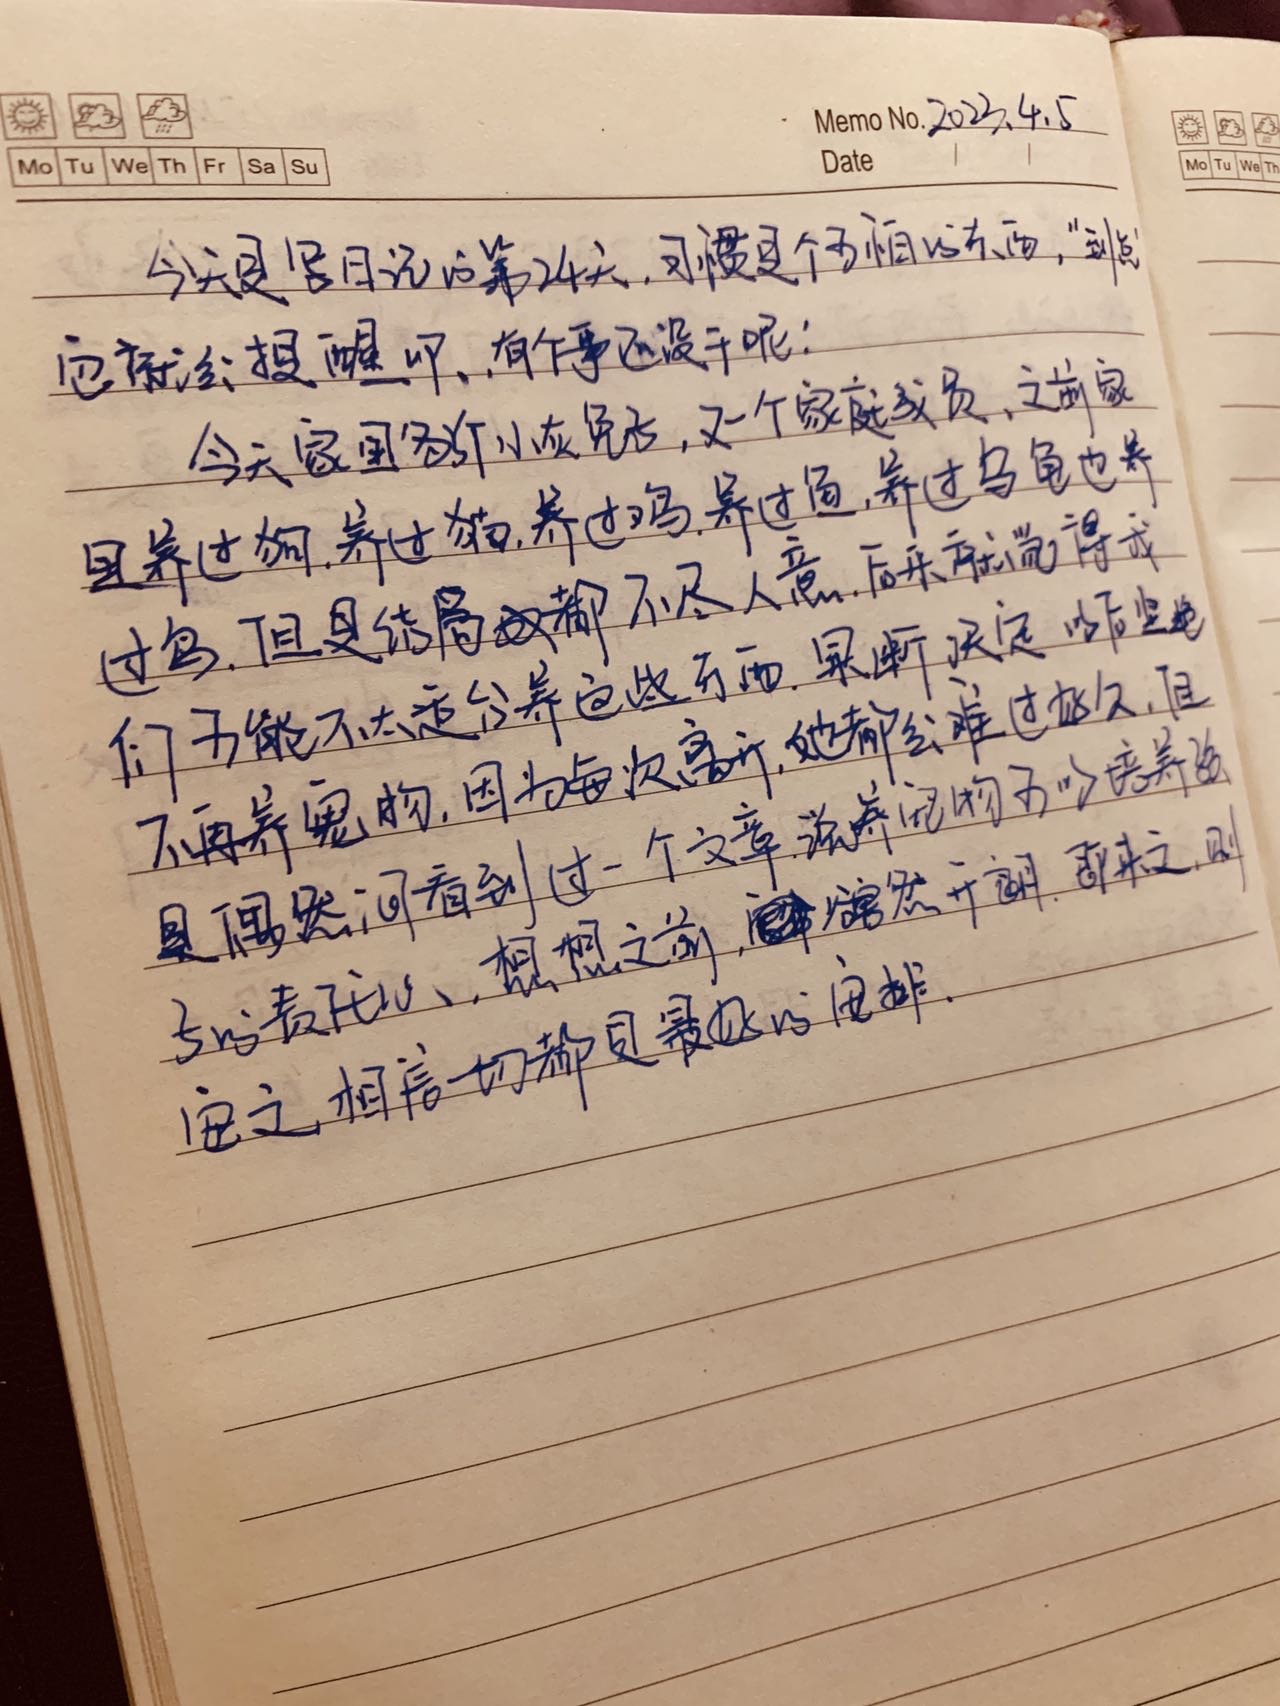 Memo No. 2023.4.5
Mo Tu We Th Fr Sa Su
Date / /
Mo Tu We Th
今天是写日记的第24天,习惯是个可怕的东西,"到点"
它就会提醒叮,有个事还没干呢!
今天家里多了个小灰兔子,又一个家庭成员、之前家
里养过狗.养过猫.养过鸡.养过鱼,养过乌龟也养
过鸟.但是结局都不尽人意.后来就觉得我
们可能不太适合养这些东西.果断决定以后坚决
不再养宠物,因为每次离开,她都会难过好久,但
是偶然间看到过一个文章.说养宠物可以培养孩
子的责任心、,想想之前,豁然开朗.既来之,则
安之,相信一切都是最好的安排.